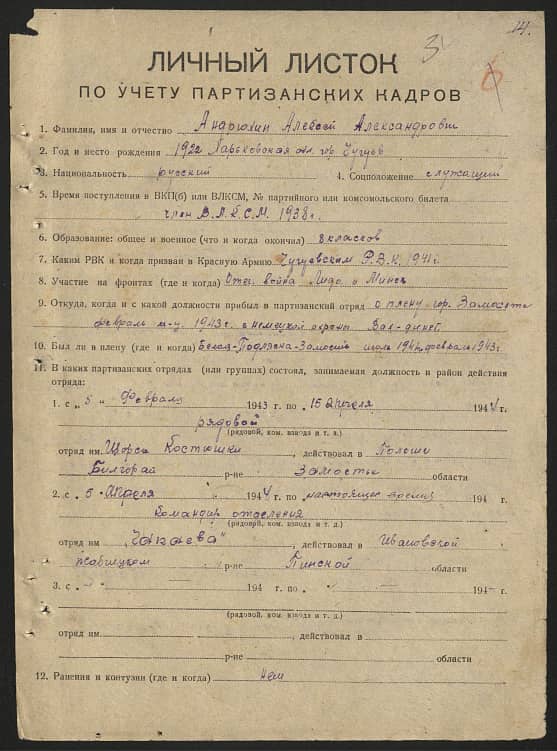 14.
ЛИЧНЫЙ ЛИСТОК
ПО УЧЕТУ ПАРТИЗАНСКИХ КАДРОВ
1. Фамилия, имя и отчество Андрюхин Алексей Александрович
2. Год и место рождения 1922 Харьковская обл. гор. Чугуев
3. Национальность русский 4. Соцположение служащий
5. Время поступления в ВКП(б) или ВЛКСМ, № партийного или комсомольского билета
член В.Л.К.С.М. 1938г.
6. Образование: общее и военное (что и когда окончил) 8 классов
7. Каким РВК и когда призван в Красную Армию Чугуевским Р.В.К. 1941г.
8. Участие на фронтах (где и когда) Отеч. война Лидо. и Минск
9. Откуда, когда и с какой должности прибыл в партизанский отряд с плену гор. Замостье
февраль м-ц. 1943г. с немецкой охраны
10. Был ли в плену (где и когда) Белая-Подляска-Замостье июль 1941 февраль 1943г.
11. В каких партизанских отрядах (или группах) состоял, занимаемая должность и район действия
отряда:
1. с „5 „ Февраля 1943 г. по 15 апреля 1944 г.
рядовой
(рядовой, ком. взвода и т. д.)
отряд им. Щорса Костюшки, действовал в Польше
Билгорай р-не Замостье области
2. с 5 Апреля 1944 г. по настоящее время 194 г.
Командир отделения
(рядовой, ком. взвода и т. д.)
отряд им. „Чапаева", действовал в Ивановской
Жабицком р-не Пинской области
3. с 194 г. по 194 г.
(рядовой, ком. взвода и т. д.)
отряд им. , действовал в
р-не области
12. Ранения и контузии (где и когда) нет